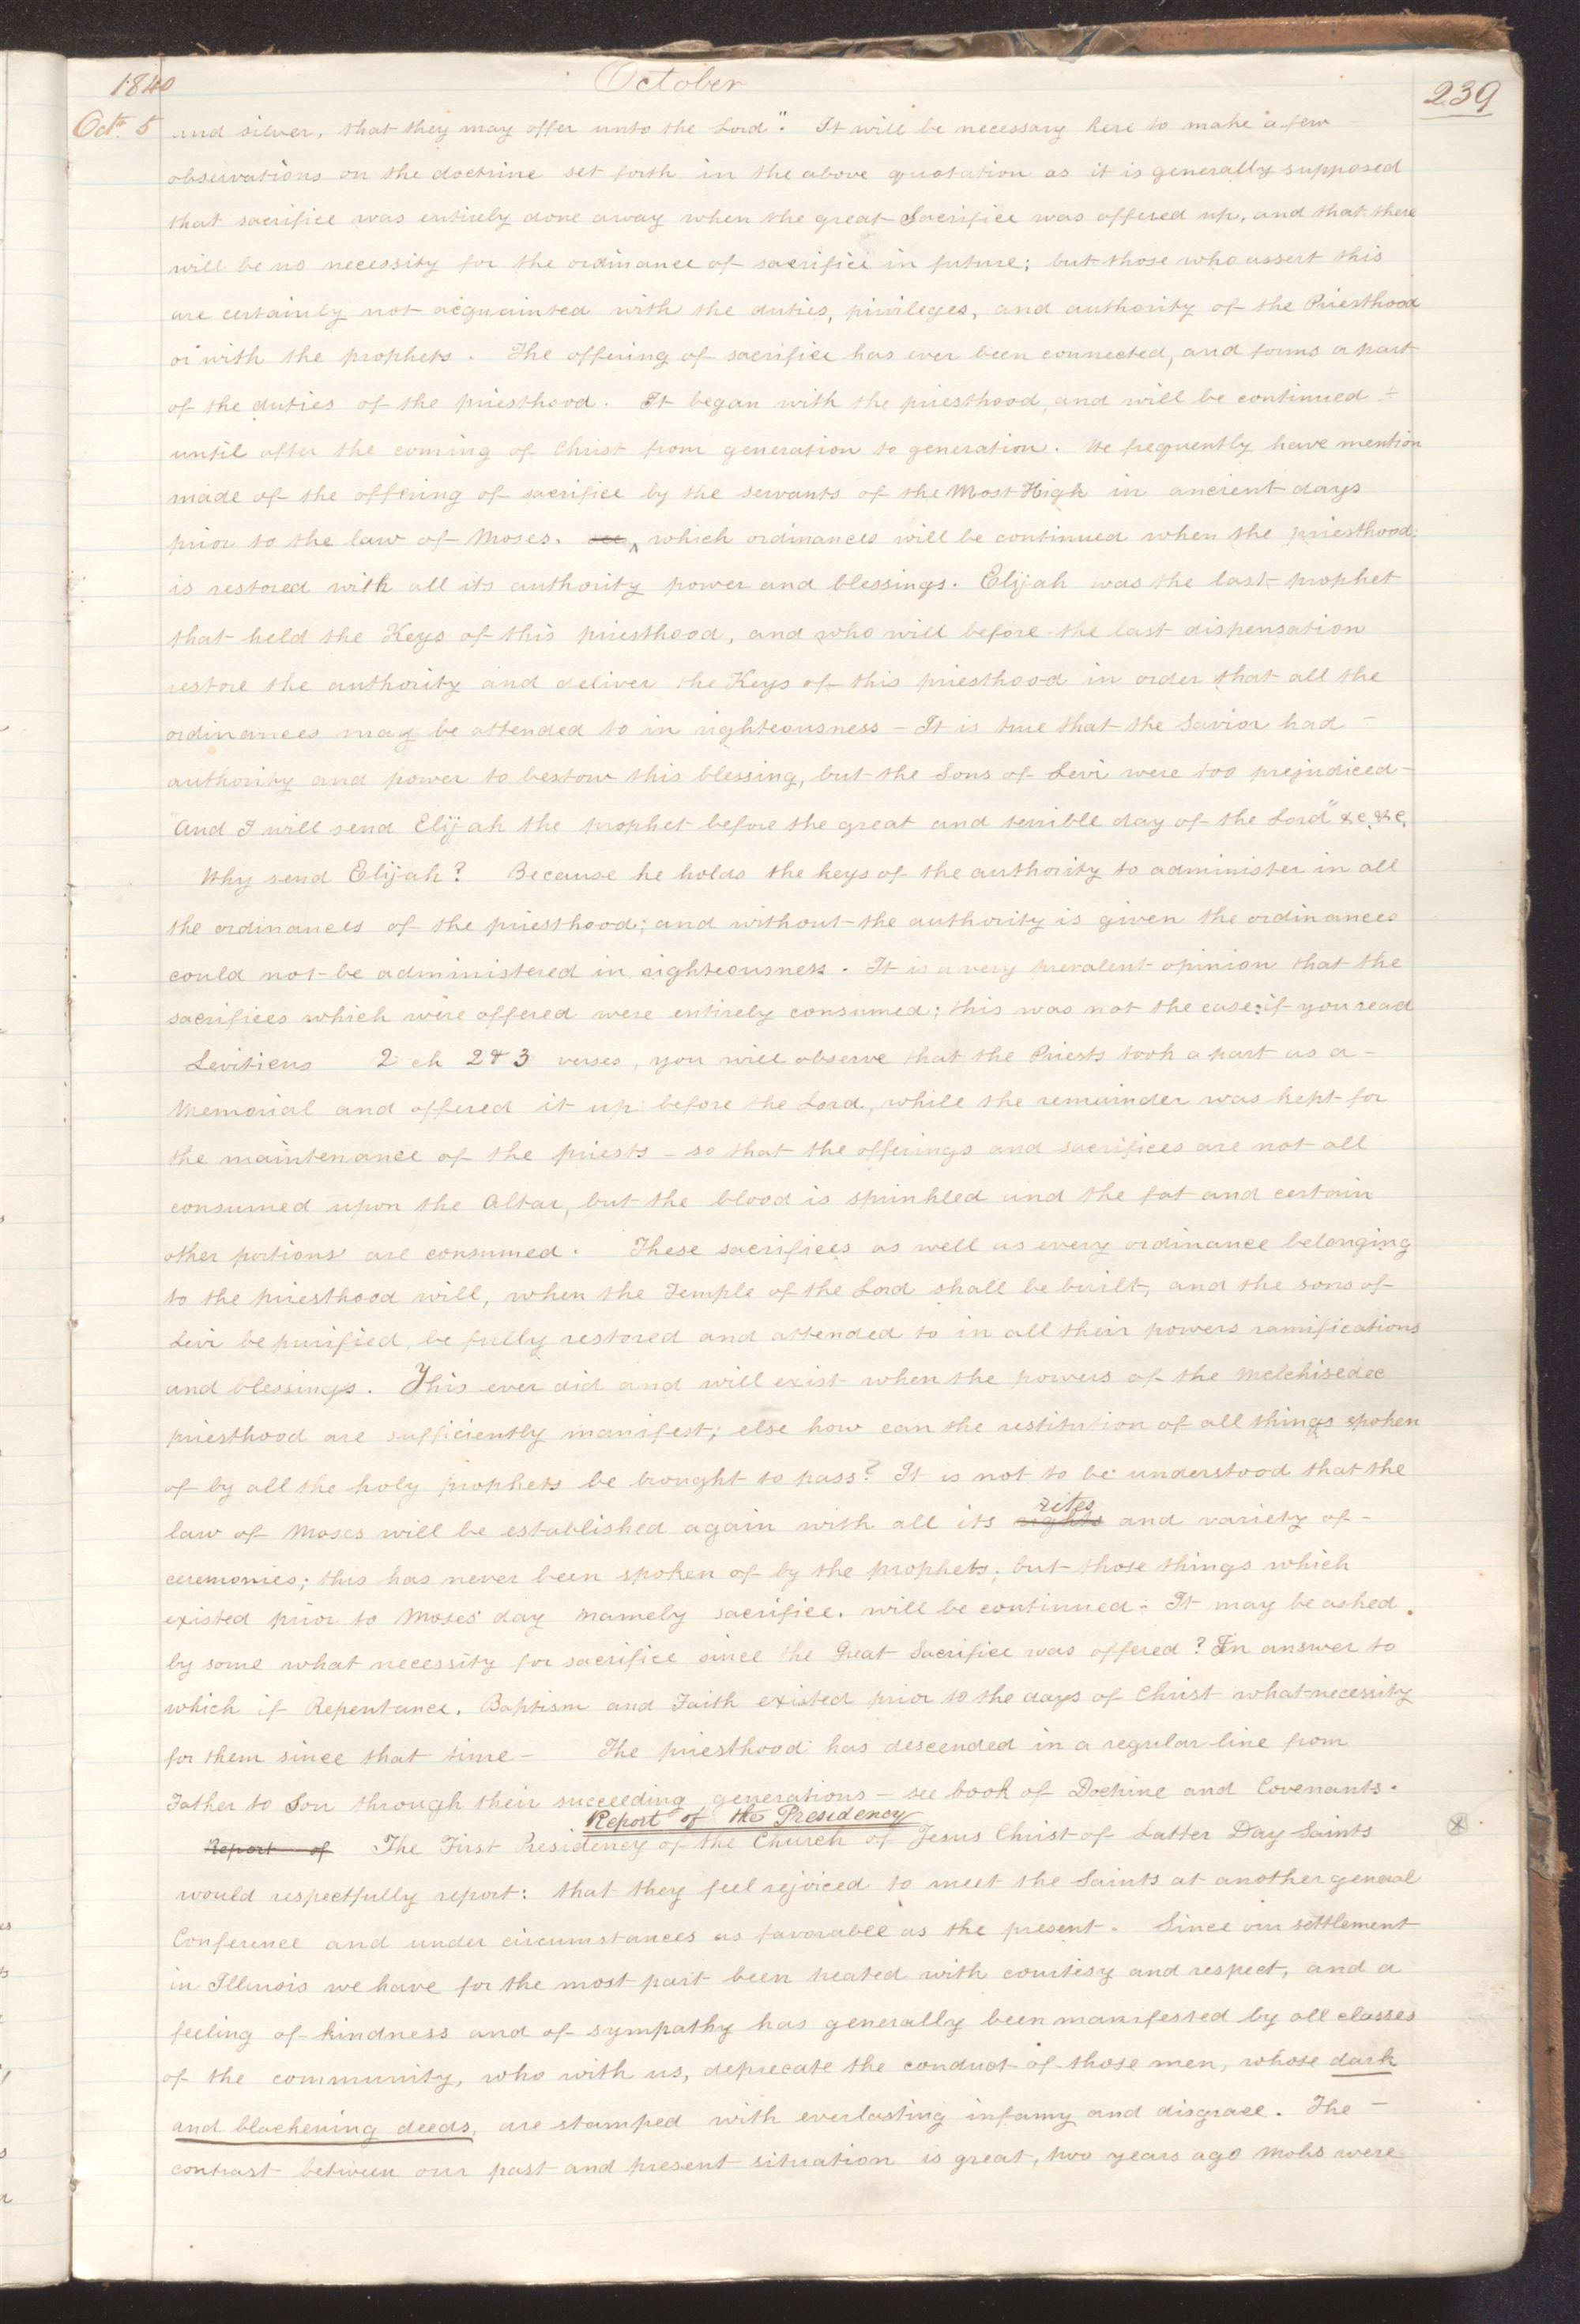 1840 October 239
Oct. 5 and silver, that they may offer unto the Lord". It will be necessary here to make a few
observations on the doctrine set forth in the above quotation as it is generally supposed
that sacrifice was entirely done away when the great Sacrifice was offered up, and that there
will be no necessity for the ordinance of sacrifice in future; but those who assert this
are certainly not acquainted with the duties, privileges, and authority of the Priesthood
or with the prophets. The offering of sacrifice has ever been connected, and forms a part
of the duties of the priesthood. It began with the priesthood, and will be continued
until after the coming of Christ from generation to generation. We frequently have mention
made of the offering of sacrifice by the servants of the Most High in ancient days
prior to the law of Moses. see ^ which ordinances will be continued when the priesthood
is restored with all its authority power and blessings. Elijah was the last prophet
that held the Keys of this priesthood, and who will before the last dispensation
restore the authority and deliver the Keys of this priesthood in order that all the
ordinances may be attended to in righteousness - It is true that the Savior had -
authority and power to bestow this blessing, but the Sons of Levi were too prejudiced -
"And I will send Elijah the prophet before the great and terrible day of the Lord" &c. &c.
Why send Elijah? Because he holds the keys of the authority to administer in all
the ordinances of the priesthood; and without the authority is given the ordinances
could not be administered in righteousness. It is a very prevalent opinion that the
sacrifices which were offered were entirely consumed; this was not the case: if you read
Leviticus 2 ch 2 & 3 verses, you will observe that the Priests took a part as a -
Memorial and offered it up before the Lord, while the remainder was kept for
the maintenance of the priests - so that the offerings and sacrifices are not all
consumed upon the Altar, but the blood is sprinkled and the fat and certain
other portions are consumed. These sacrifices as well as every ordinance belonging
to the priesthood will, when the Temple of the Lord shall be built, and the sons of
Levi be purified, be fully restored and attended to in all their powers ramifications
and blessings. This ever did and will exist when the powers of the Melchisedec
priesthood are sufficiently manifest; else how can the restitution of all things spoken
of by all the holy prophets be brought to pass? It is not to be understood that the
rites
law of Moses will be established again with all its rights and variety of -
ceremonies; this has never been spoken of by the prophets; but those things which
existed prior to Moses' day nameby sacrifice. will be continued - It may be asked
by some what necessity for sacrifice since the Great Sacrifice was offered? In answer to
which if Repentance, Baptism and Faith existed prior to the days of Christ what necessity
for them since that time - The priesthood has descended in a regular line from
Father to Son through their succeeding generations - see book of Doctrine and Covenants.
Report of the Presidency
Report of The First Presidency of the Church of Jesus Christ of Latter Day Saints
would respectfully report: that they feel rejoiced to meet the Saints at another general
Conference and under circumstances as favorable as the present. Since our settlement
in Illinois we have for the most part been treated with courtesy and respect, and a
feeling of kindness and of sympathy has generally been manifested by all classes
of the community, who with us, deprecate the conduct of those men, whose dark
and blackening deeds, are stamped with everlasting infamy and disgrace. The -
contrast between our past and present situation is great, two years ago mobs were